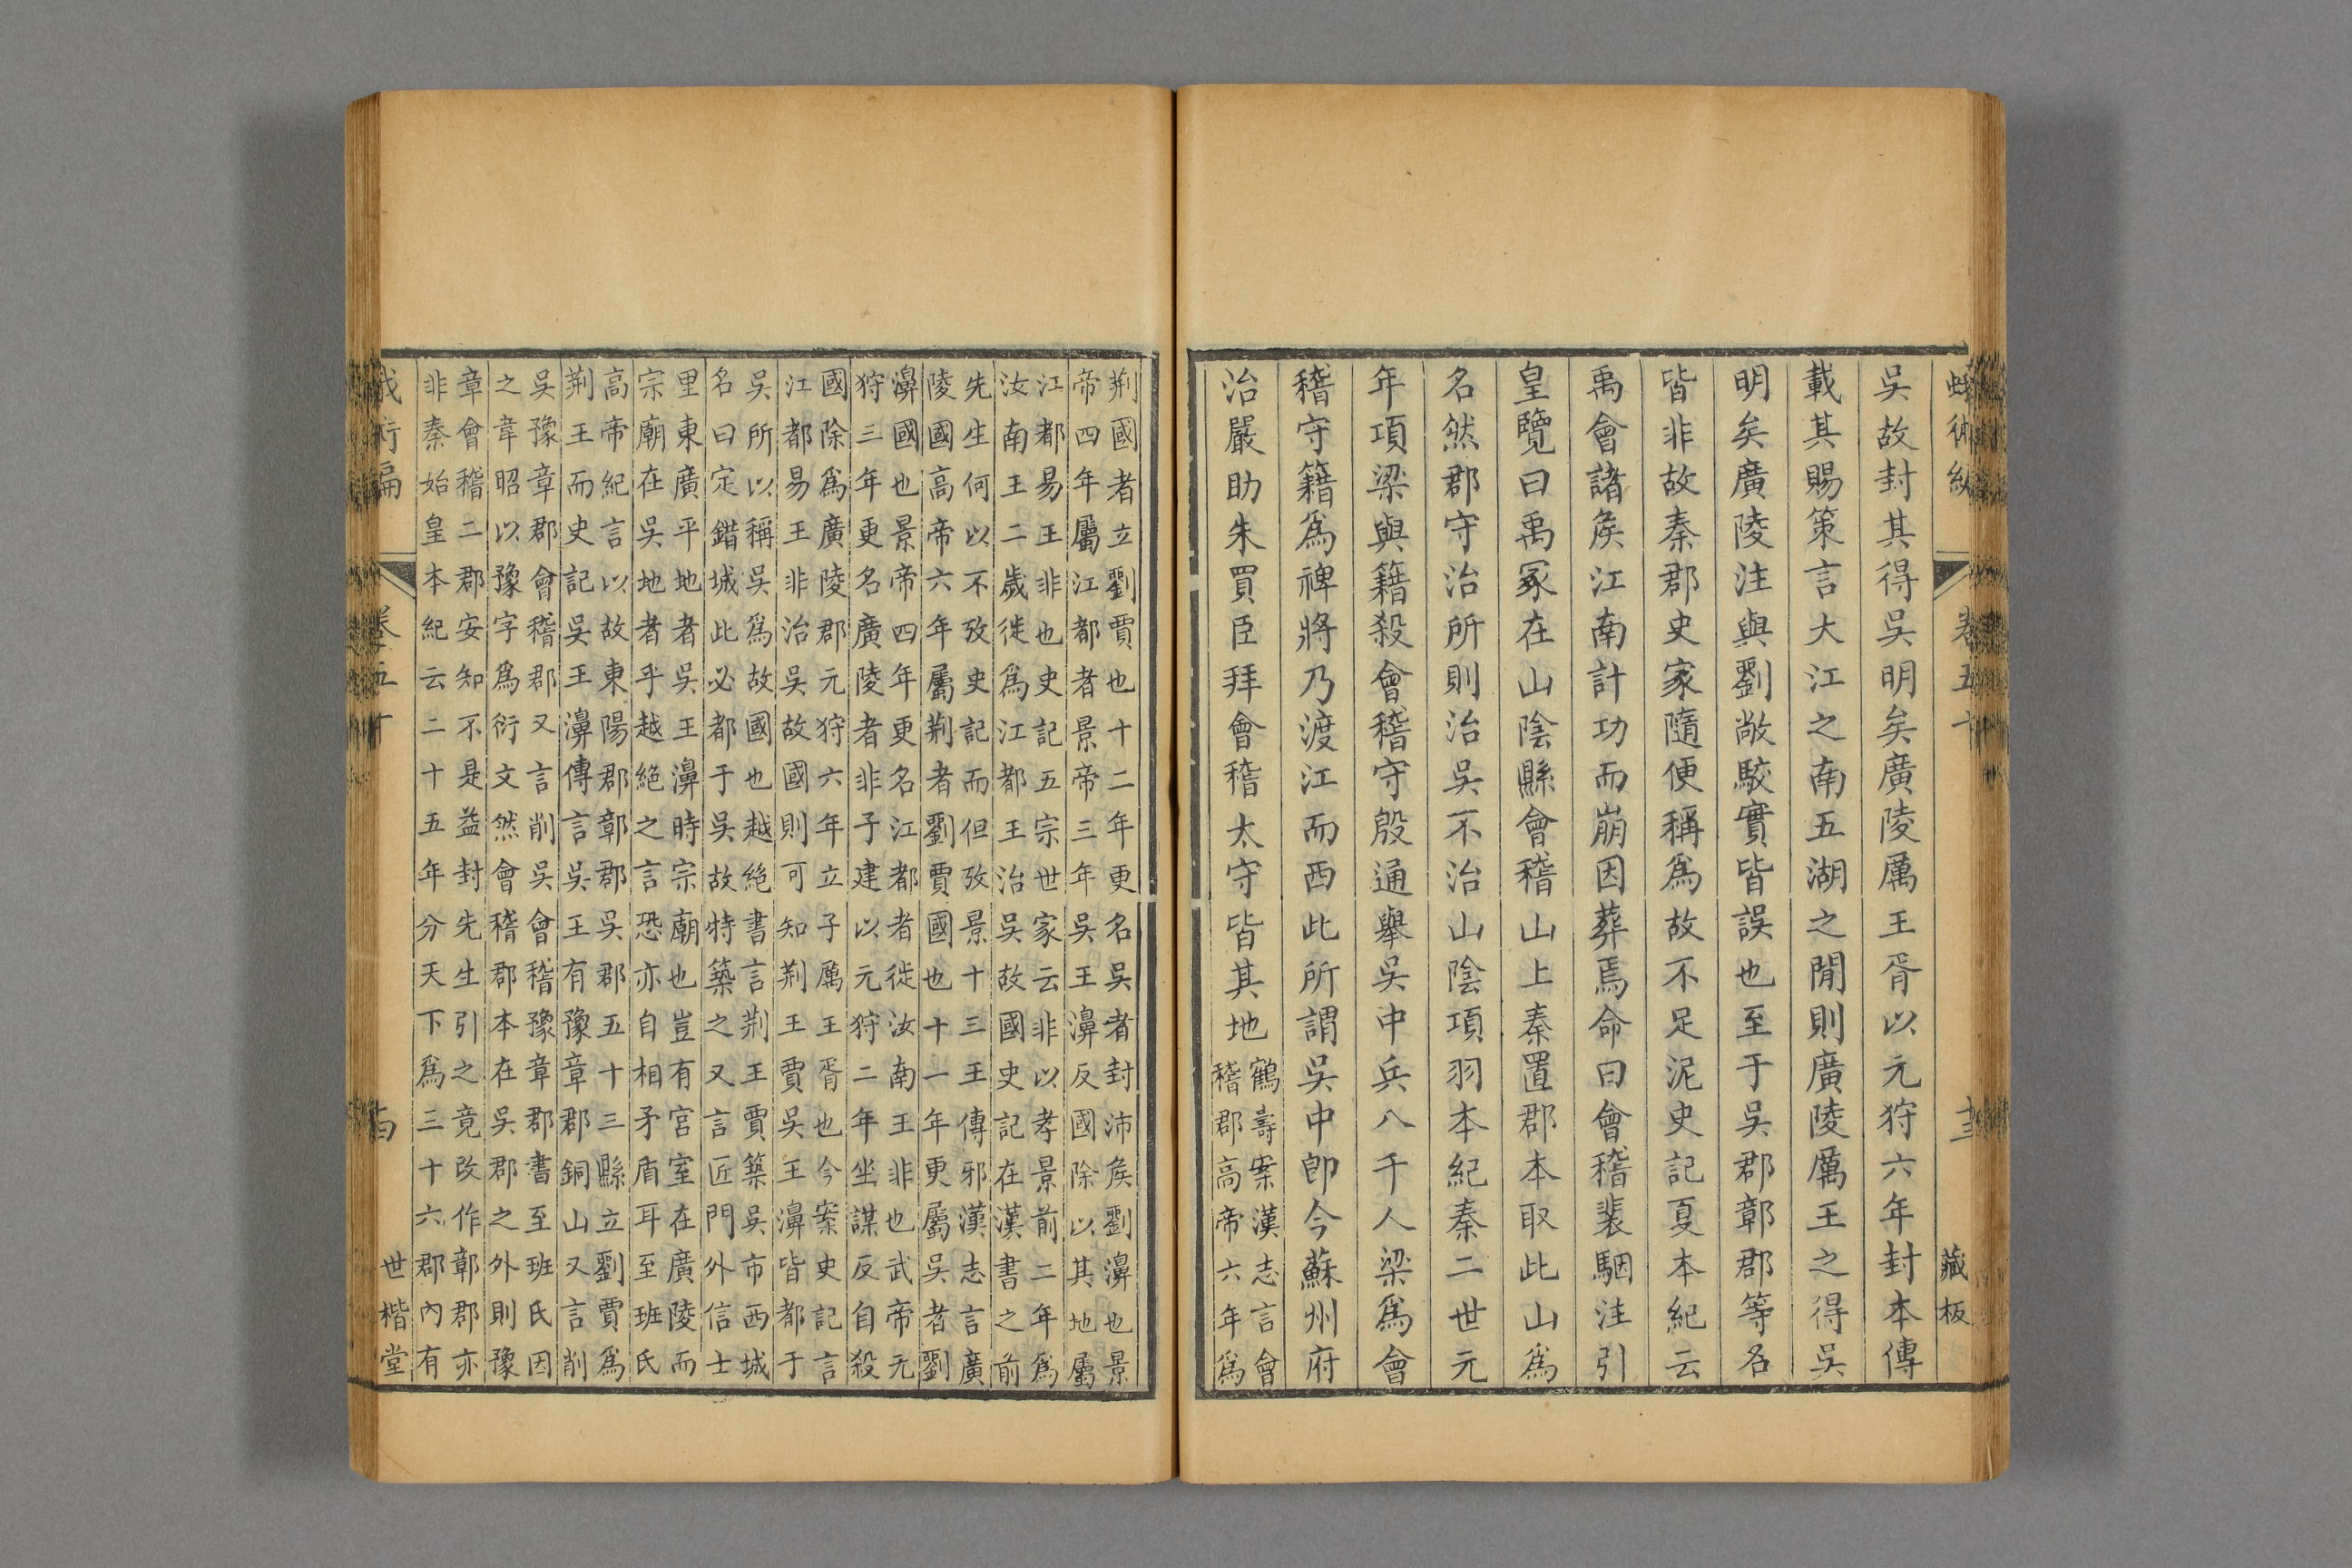 蛾術編 卷五十 十三 藏板
吳故封其得吳明矣廣陵厲王胥以元狩六年封本傳
載其賜策言大江之南五湖之閒則廣陵厲王之得吳
明矣廣陵注與劉敞駮實皆誤也至于吳郡鄣郡等名
皆非故秦郡史家隨便稱爲故不足泥史記夏本紀云
禹會諸矦江南計功而崩因葬焉命曰會稽裴駰注引
皇覽曰禹冢在山陰縣會稽山上秦置郡本取此山爲
名然郡守治所則治吳不治山陰項羽本紀秦二世元
年項梁與籍殺會稽守殷通舉吳中兵八千人梁爲會
稽守籍爲裨將乃渡江而西此所謂吳中卽今蘇州府
治嚴助朱買臣拜會稽太守皆其地
鶴壽案漢志言會
稽郡高帝六年爲
荆國者立劉賈也十二年更名吳者封沛矦劉濞也景
帝四年屬江都者景帝三年吳王濞反國除以其地屬
江都易王非也史記五宗世家云非以孝景前二年爲
汝南王二歲徙爲江都王治吳故國史記在漢書之前
先生何以不攷史記而但攷景十三王傳邪漢志言廣
陵國高帝六年屬荆者劉賈國也十一年更屬吳者劉
濞國也景帝四年更名江都者徙汝南王非也武帝元
狩三年更名廣陵者非子建以元狩二年坐謀反自殺
國除爲廣陵郡元狩六年立子厲王胥也今案史記言
江都易王非治吳故國則可知荆王賈吳王濞皆都于
吳所以稱吳爲故國也越絶書言荆王賈築吳市西城
名曰定錯城此必都于吳故特築之又言匠門外信士
里東廣平地者吳王濞時宗廟也豈有宮室在廣陵而
宗廟在吳地者乎越絶之言恐亦自相矛盾耳至班氏
高帝紀言以故東陽郡鄣郡吳郡五十三縣立劉賈爲
荆王而史記吳王濞傳言吳王有豫章郡銅山又言削
吳豫章郡會稽郡又言削吳會稽豫章郡書至班氏因
之韋昭以豫字爲衍文然會稽郡本在吳郡之外則豫
章會稽二郡安知不是益封先生引之竟改作鄣郡亦
非秦始皇本紀云二十五年分天下爲三十六郡內有
蛾術編 卷五十 十四 世楷堂